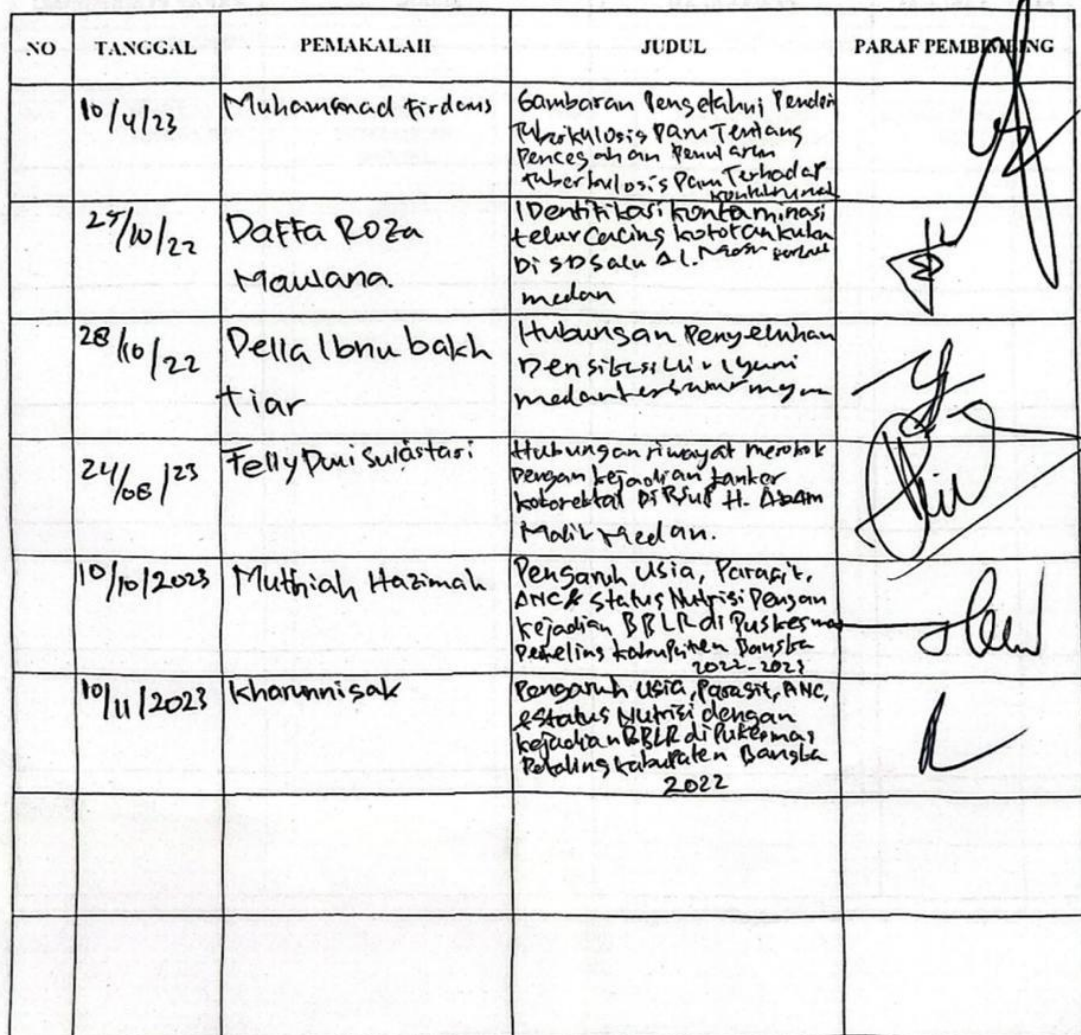 NO TANGGAL PEMAKALAH JUDUL PARAF PEMBIMBING
10/4/23 Muhammad Firdaus Gambaran Pengetahui Penderi
Tuberkulosis Paru Tentang
Pencegahan Penularan
tuberkulosis Paru Terhadap
25/10/22 Daffa Roza IDentifikasi kontaminasi
telur Cacing kotoran kuku
Maulana. Di SD Al.
medan
28/10/22 Della Ibnu bakh Hubungan Penyeluhan
tiar
medan
24/08/23 Felly Dwi Sulastari Hubungan riwayat merokok
Dengan kejadian kanker
kolorektal Di RSUP H. Adam
Malik Medan.
10/10/2023 Muthiah Hazimah Pengaruh Usia, Parasit,
ANC & Status Nutrisi Dengan
kejadian BBLR di Puskesmas
Petaling kabupaten Bangka
2022-2023
10/11/2023 kharunnisak Pengaruh Usia, Parasit, ANC,
& Status Nutrisi dengan
kejadian BBLR di Pukesmas
Petaling kabupaten Bangka
2022